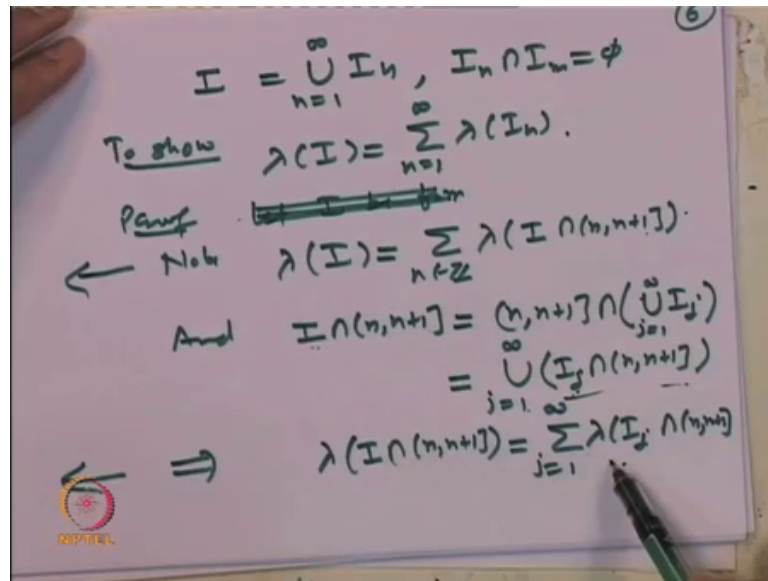 6
I = ⋃_{n=1}^{∞} I_n , I_n ∩ I_m = ϕ
To show λ(I) = ∑_{n=1}^{∞} λ(I_n).
Proof
← Note λ(I) = ∑_{n∈ℤ} λ(I ∩ (n, n+1]).
And I ∩ (n, n+1] = (n, n+1] ∩ (⋃_{j=1}^{∞} I_j)
= ⋃_{j=1}^{∞} (I_j ∩ (n, n+1])
← ⇒ λ(I ∩ (n, n+1]) = ∑_{j=1}^{∞} λ(I_j ∩ (n, n+1]
NPTEL